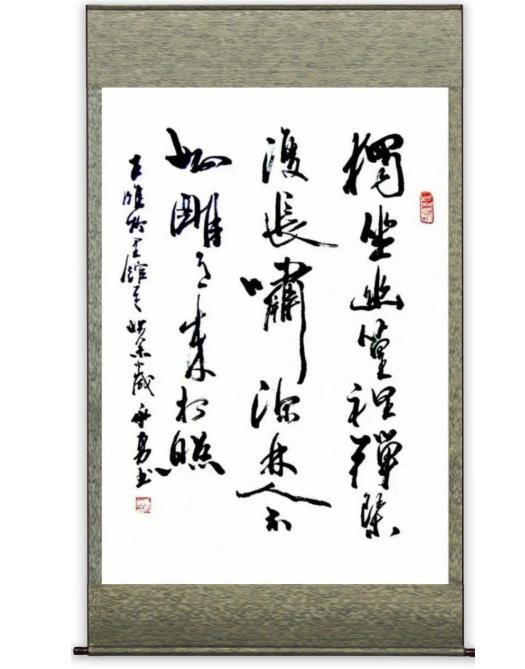 獨坐幽篁裡彈琴
復長嘯深林人不
知明月来相照
王維竹里館 歲 勇書